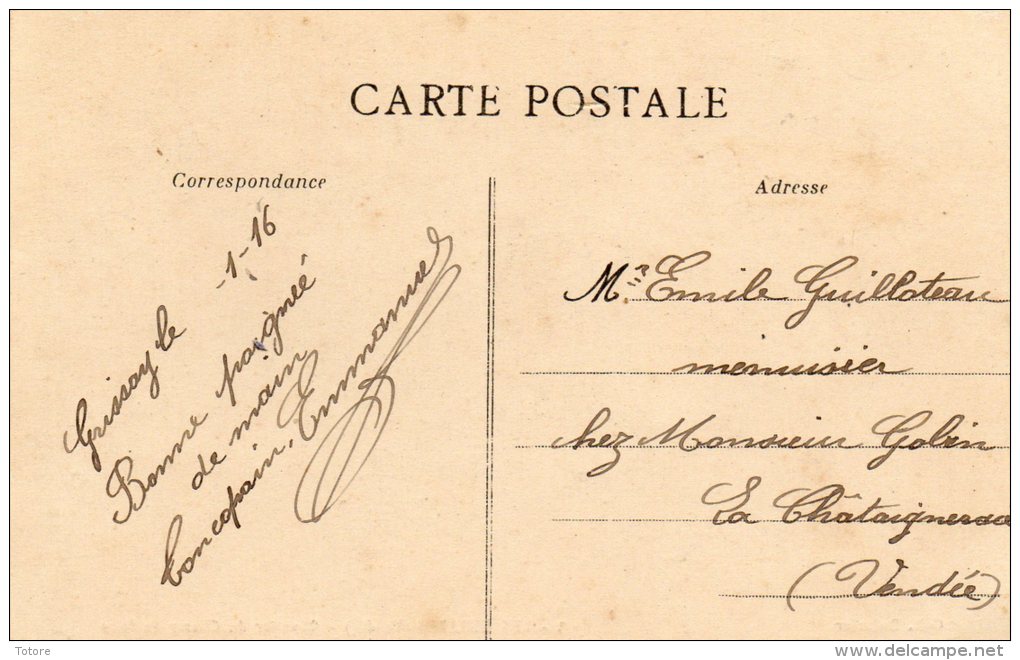 CARTE POSTALE
Correspondance
Grissay le -1-16
Bonne poignée
de main
Emmanuel
Adresse
Mr Emile Guilloteau
menuisier
chez Monsieur Gobin
La Châtaigneraie
(Vendée)
Totore
www.delcampe.net